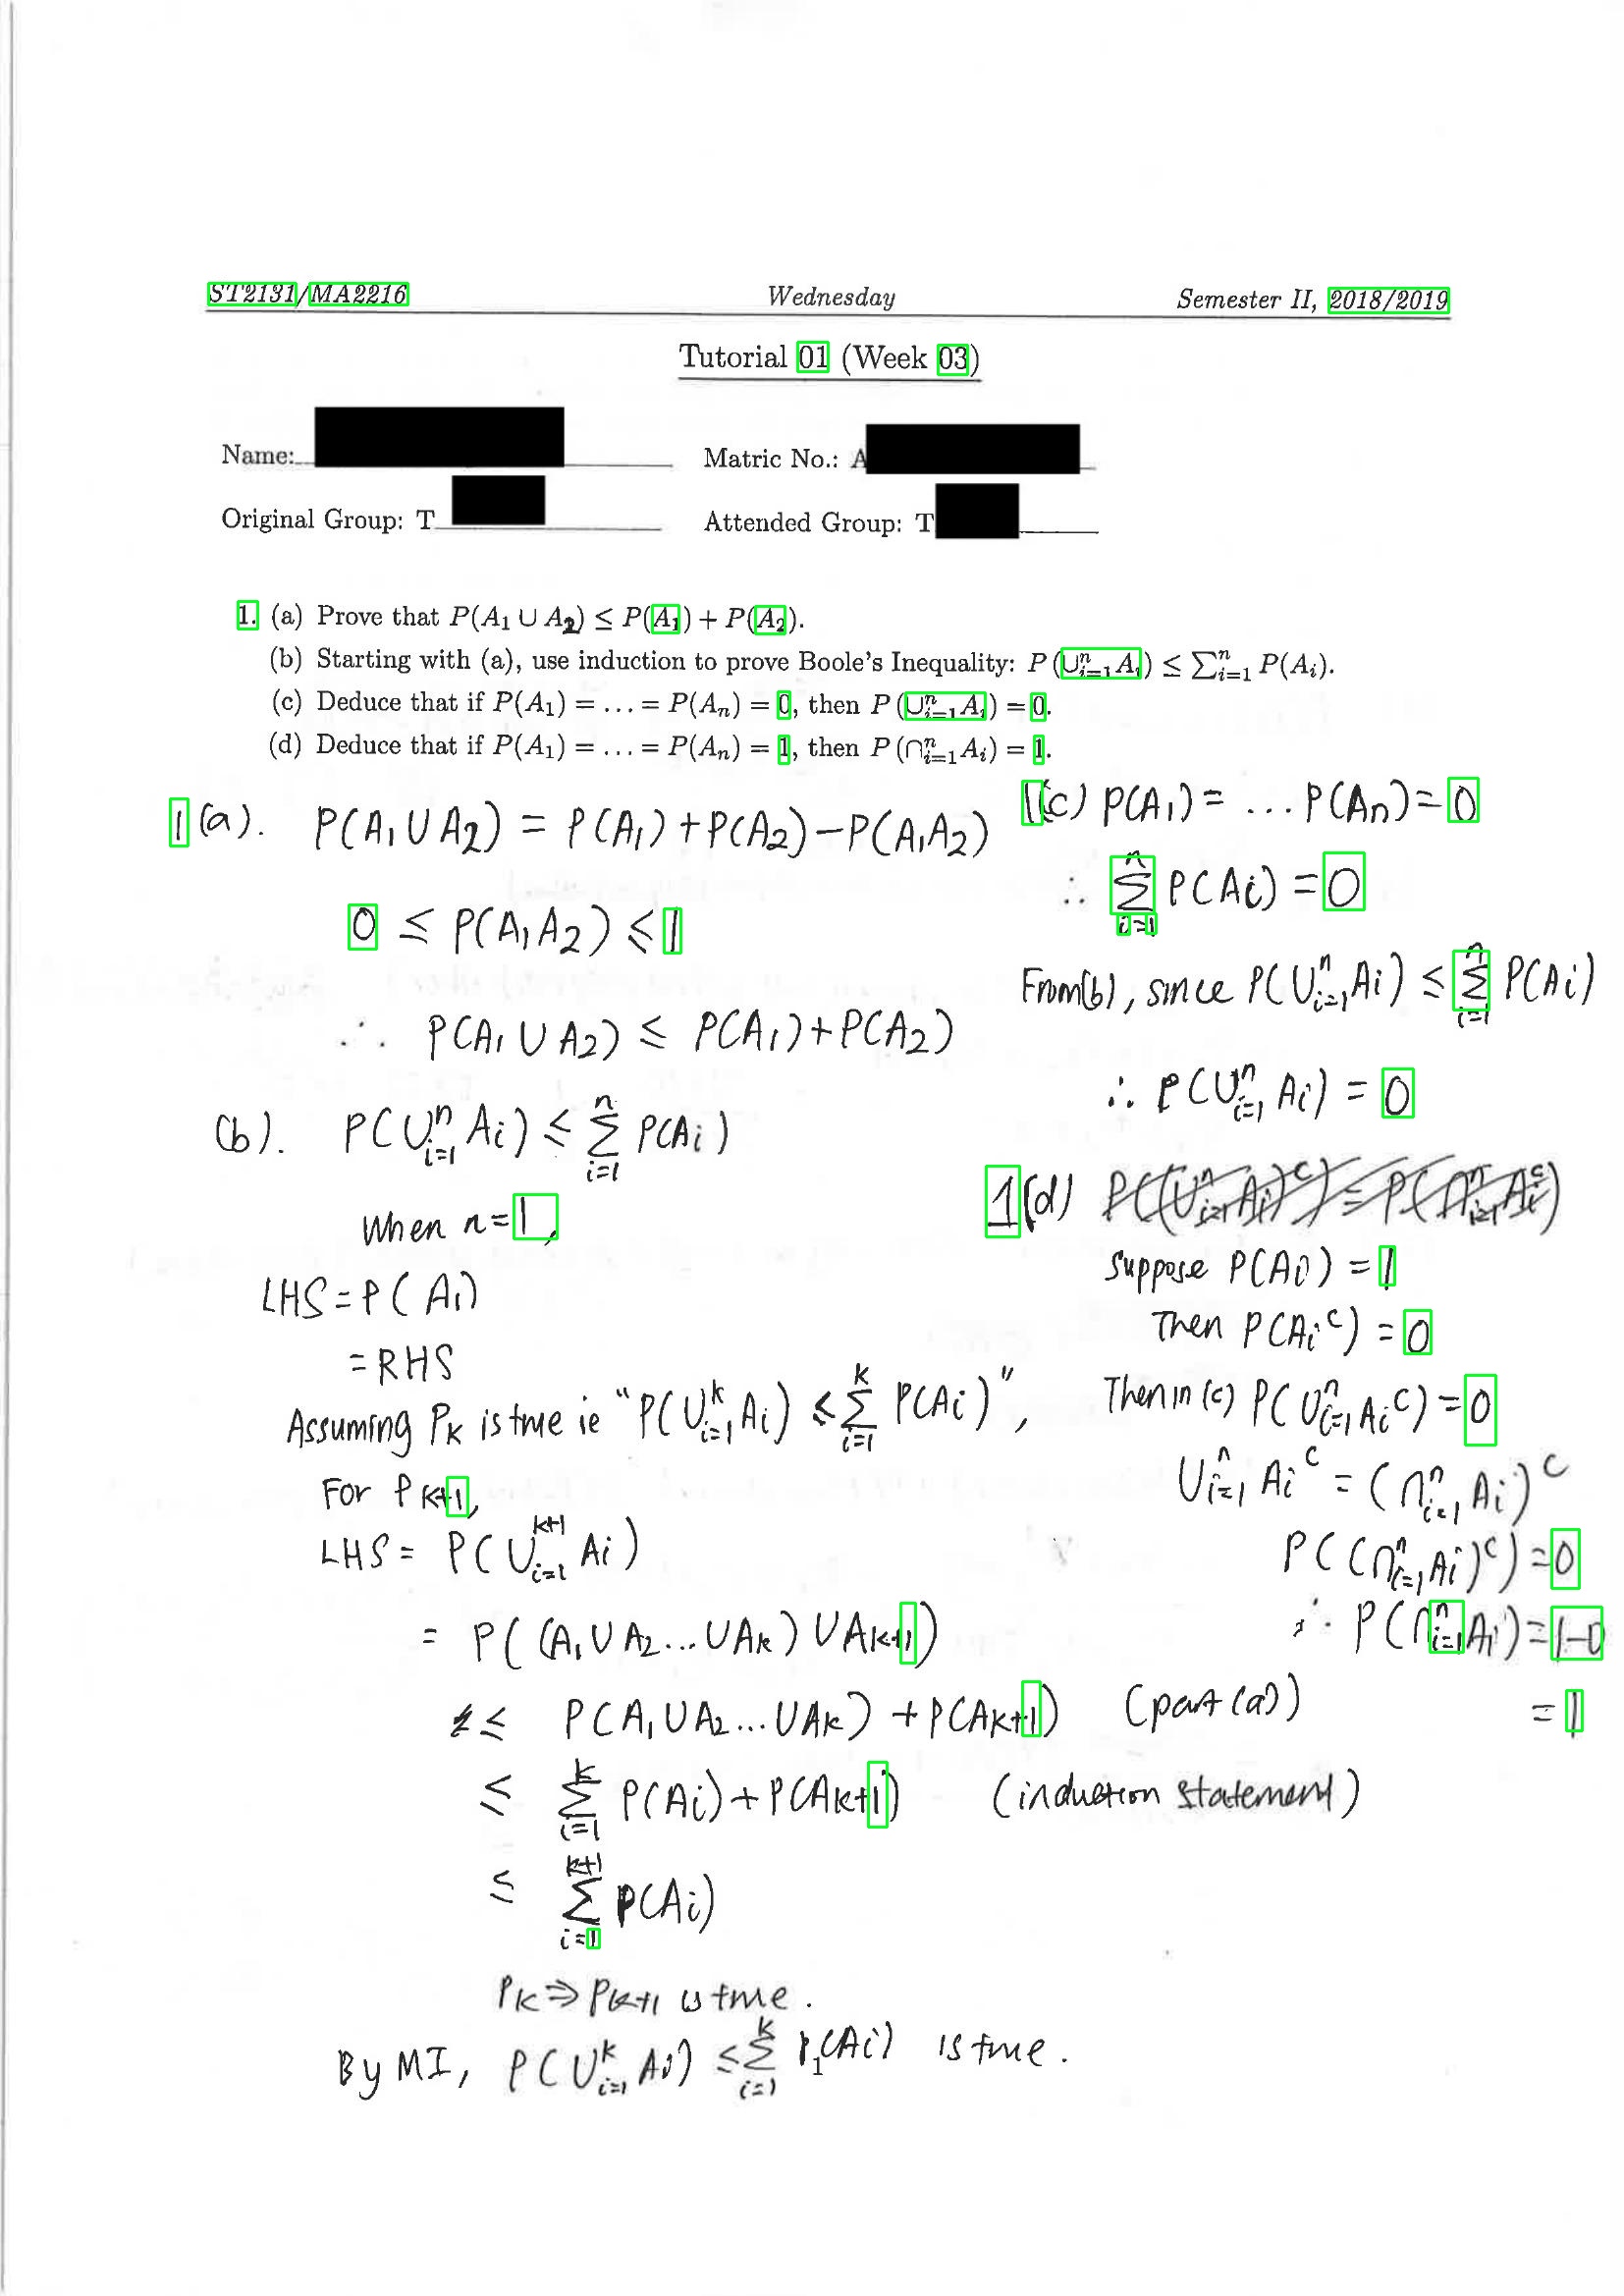 ST2131/MA2216 Wednesday Semester II, 2018/2019
Tutorial 01 (Week 03)
Name: Matric No.: A
Original Group: T Attended Group: T
1. (a) Prove that P(A₁ ∪ A₂) ≤ P(A₁) + P(A₂).
(b) Starting with (a), use induction to prove Boole's Inequality: P(∪ⁿᵢ₌₁Aᵢ) ≤ ∑ⁿᵢ₌₁ P(Aᵢ).
(c) Deduce that if P(A₁) = ... = P(Aₙ) = 0, then P(∪ⁿᵢ₌₁Aᵢ) = 0.
(d) Deduce that if P(A₁) = ... = P(Aₙ) = 1, then P(∩ⁿᵢ₌₁Aᵢ) = 1.
1(a). P(A₁ ∪ A₂) = P(A₁) + P(A₂) − P(A₁A₂)
0 ≤ P(A₁A₂) ≤ 1
∴ P(A₁ ∪ A₂) ≤ P(A₁) + P(A₂)
(b). P(∪ⁿᵢ₌₁ Aᵢ) ≤ ∑ⁿᵢ₌₁ P(Aᵢ)
When n=1,
LHS = P(A₁)
= RHS
Assuming Pₖ is true ie "P(∪ᵏᵢ₌₁ Aᵢ) ≤ ∑ᵏᵢ₌₁ P(Aᵢ)",
For Pₖ₊₁,
LHS = P(∪ᵏ⁺¹ᵢ₌₁ Aᵢ)
= P((A₁ ∪ A₂ ... ∪ Aₖ) ∪ Aₖ₊₁)
≤ P(A₁ ∪ A₂ ... ∪ Aₖ) + P(Aₖ₊₁) (part (a))
≤ ∑ᵏᵢ₌₁ P(Aᵢ) + P(Aₖ₊₁) (induction statement)
≤ ∑ᵏ⁺¹ᵢ₌₁ P(Aᵢ)
Pₖ ⇒ Pₖ₊₁ is true.
By MI, P(∪ᵏᵢ₌₁ Aᵢ) ≤ ∑ᵏᵢ₌₁ P(Aᵢ) is true.
1(c) P(A₁) = ... P(Aₙ) = 0
∴ ∑ⁿᵢ₌₁ P(Aᵢ) = 0
From(b), since P(∪ⁿᵢ₌₁ Aᵢ) ≤ ∑ⁿᵢ₌₁ P(Aᵢ)
∴ P(∪ⁿᵢ₌₁ Aᵢ) = 0
1(d) P((∪ⁿᵢ₌₁ Aᵢ)ᶜ) = P(∩ⁿᵢ₌₁ Aᵢᶜ)
Suppose P(Aᵢ) = 1
Then P(Aᵢᶜ) = 0
Then in (c) P(∪ⁿᵢ₌₁ Aᵢᶜ) = 0
∪ⁿᵢ₌₁ Aᵢᶜ = (∩ⁿᵢ₌₁ Aᵢ)ᶜ
P((∩ⁿᵢ₌₁ Aᵢ)ᶜ) = 0
∴ P(∩ⁿᵢ₌₁ Aᵢ) = 1−0
= 1